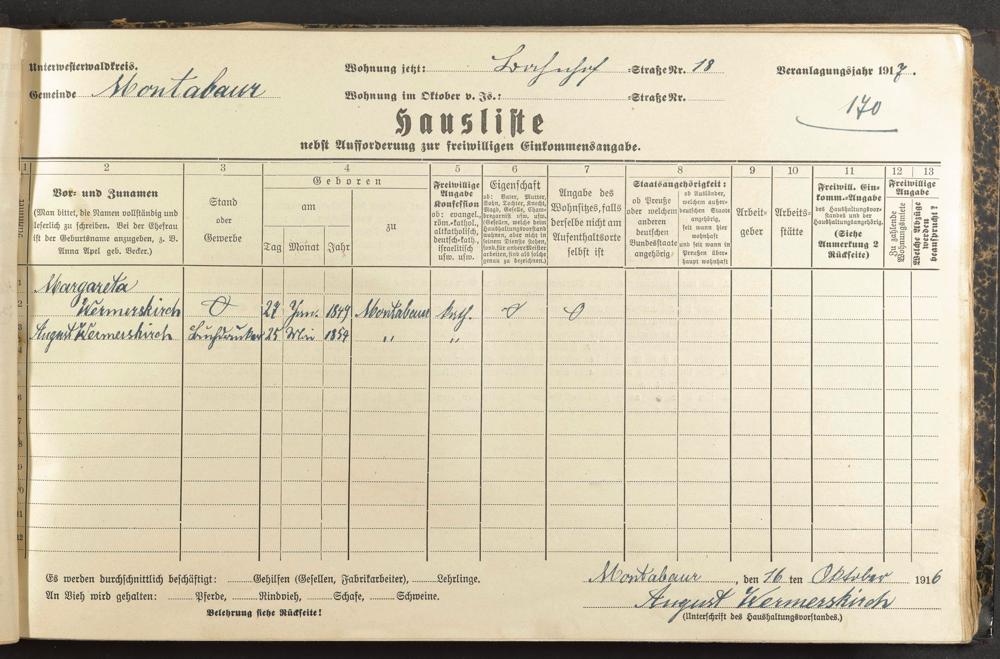 Unterwesterwaldkreis.
Wohnung jetzt: Bahnhof =Straße Nr. 18
Veranlagungsjahr 1917.
Gemeinde Montabaur
Wohnung im Oktober v. Js.: =Straße Nr.
170
Hausliste
nebst Aufforderung zur freiwilligen Einkommensangabe.
1 2 3 4 5 6 7 8 9 10 11 12 13
Nummer
Vor- und Zunamen
(Man bittet, die Namen vollständig und
leserlich zu schreiben. Bei der Ehefrau
ist der Geburtsname anzugeben, z. B.
Anna Apel geb. Becker.)
Stand
oder
Gewerbe
Geboren
am
Tag Monat Jahr
zu
Freiwillige
Angabe
Konfession
ob: evangel.,
röm.-kathol.,
altkatholisch,
deutsch-kath.,
israelitisch
usw. usw.
Eigenschaft
ob: Vater, Mutter,
Sohn, Tochter, Knecht,
Magd, Geselle, Cham-
bregarnist usw. usw.
(Gesellen, welche beim
Haushaltungsvorstand
wohnen, aber nicht in
seinem Dienste stehen,
sond. für andere Meister
arbeiten, sind als solche
genau zu bezeichnen.)
Angabe des
Wohnsitzes, falls
derselbe nicht am
Aufenthaltsorte
selbst ist
Staatsangehörigkeit:
ob Preuße
oder welchem
anderen
deutschen
Bundesstaate
angehörig
ob Ausländer,
welchem außer-
deutschen Staate
angehörig,
seit wann hier
wohnhaft
und seit wann in
Preußen über-
haupt wohnhaft
Arbeit=
geber
Arbeits=
stätte
Freiwill. Ein-
komm.-Angabe
des Haushaltungsvor-
standes und der
Haushaltungsangehörig.
(Siehe
Anmerkung 2
Rückseite)
Freiwillige
Angabe
Zu zahlende
Wohnungsmiete
Welche Abzüge
werden
beansprucht?
1 Margareta
2 Wermerskirch 27 Jan. 1849 Montabaur kath.
3 August Wermerskirch Buchdrucker 25 Mai 1854 " "
4
5
6
7
8
9
10
11
12
Es werden durchschnittlich beschäftigt: Gehilfen (Gesellen, Fabrikarbeiter), Lehrlinge.
Montabaur, den 16 ten Oktober 1916
An Vieh wird gehalten: Pferde, Rindvieh, Schafe, Schweine.
August Wermerskirch
Belehrung siehe Rückseite!
(Unterschrift des Haushaltungsvorstandes.)